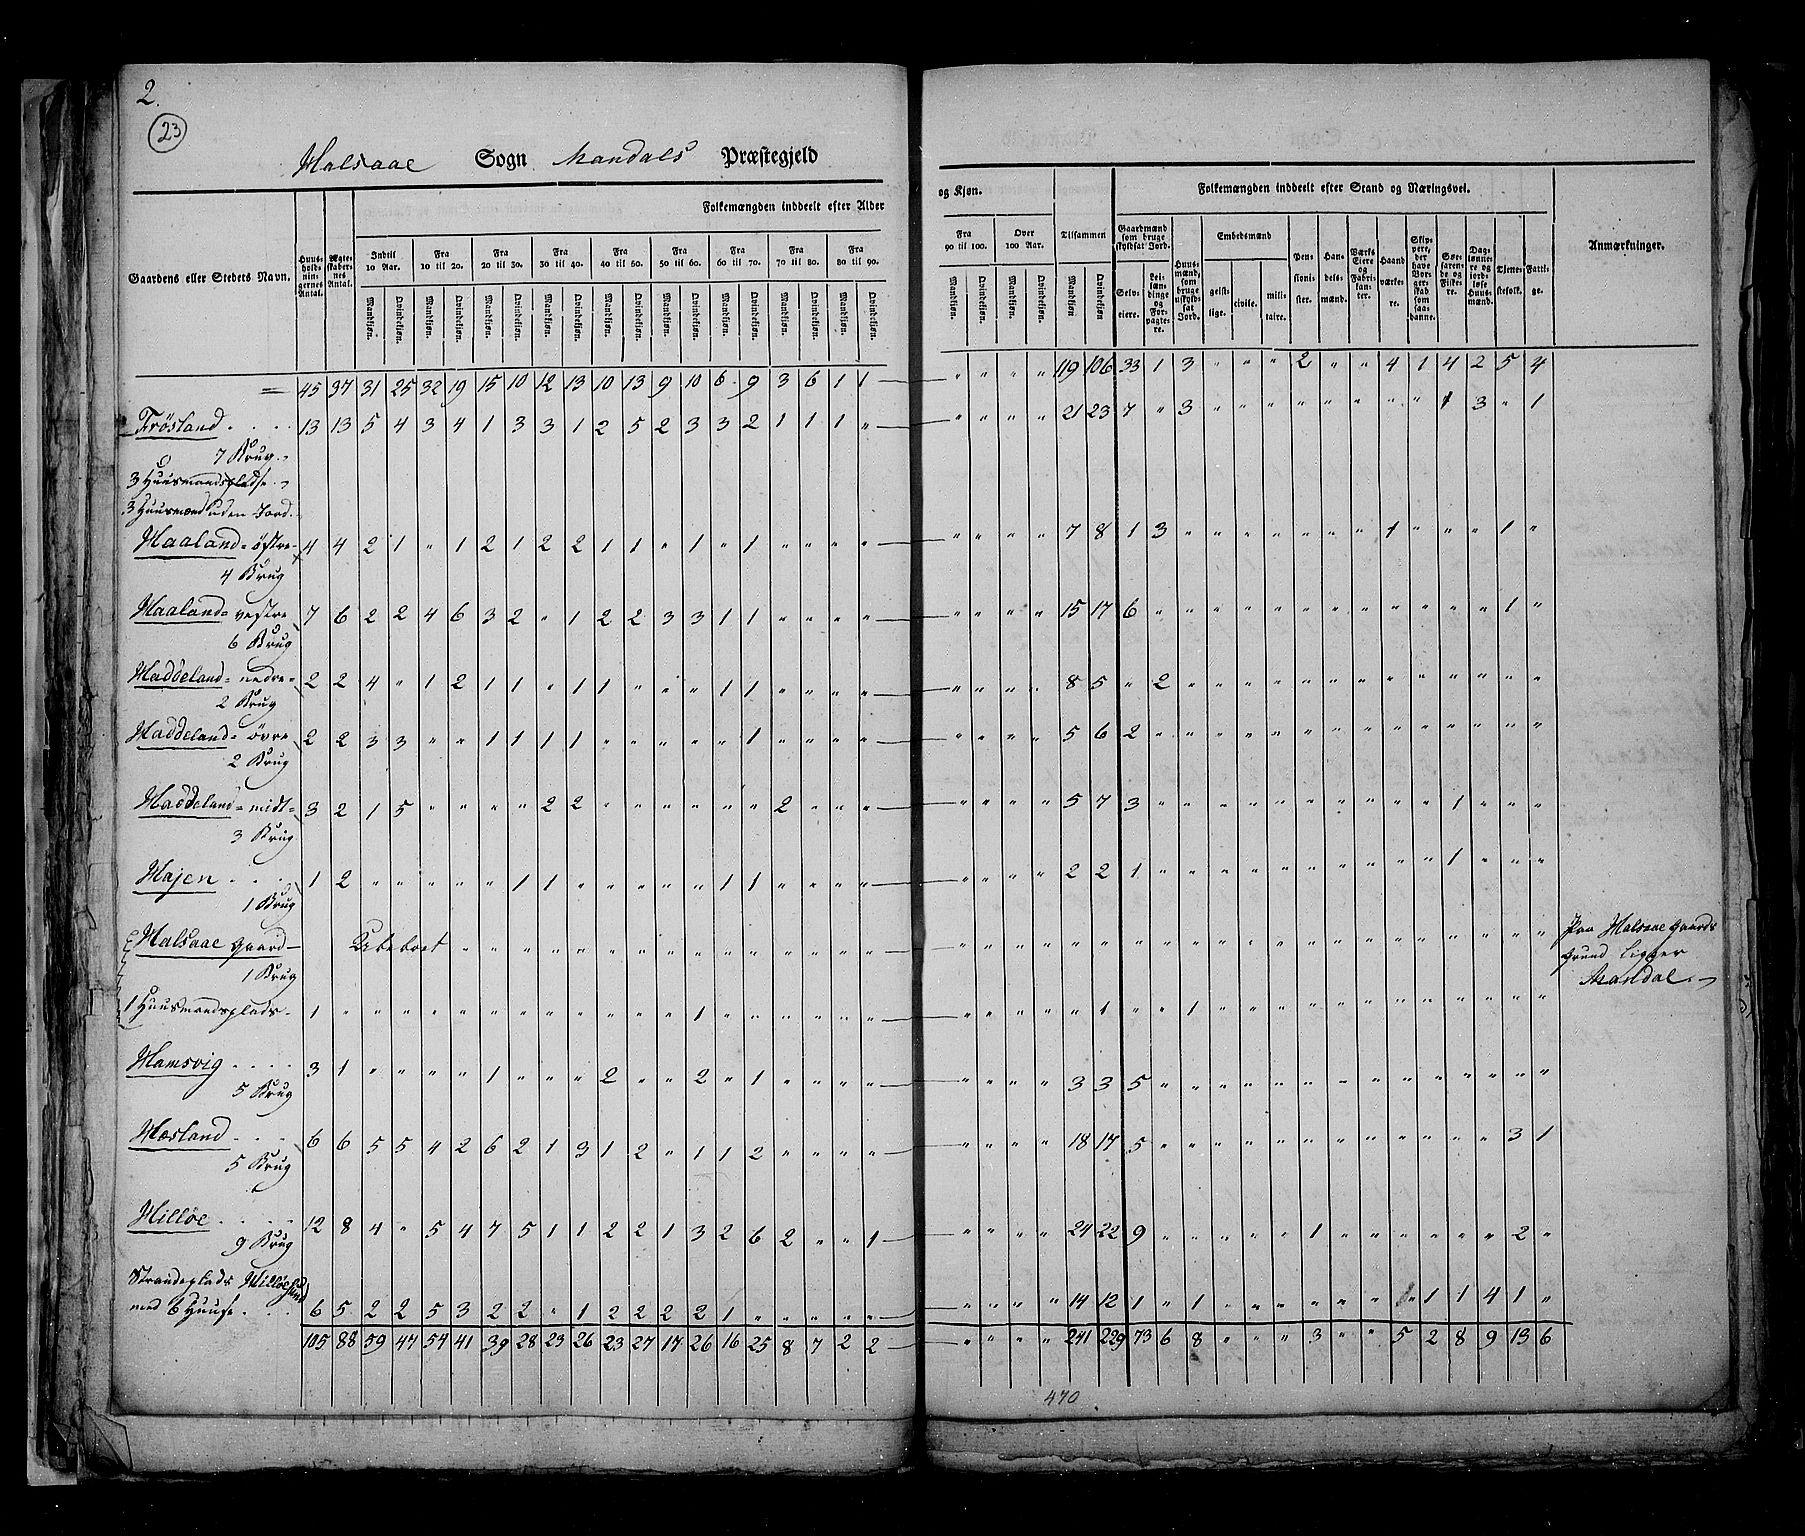 2.
23
Halsaae Sogn Mandals Præstegjeld
Folkemængden inddeelt efter Alder og Kjøn.
Folkemængden inddeelt efter Stand og Næringsvei.
Gaardens eller Stedets Navn.
Huus-holdnin-gernes Antal.
Ægte-skaber-nes Antal.
Indtil 10 Aar.
Fra 10 til 20.
Fra 20 til 30.
Fra 30 til 40.
Fra 40 til 50.
Fra 50 til 60.
Fra 60 til 70.
Fra 70 til 80.
Fra 80 til 90.
Fra 90 til 100.
Over 100 Aar.
Tilsammen
Mandkjøn. Qvindekjøn.
Gaardmænd som bruge skyldsat Jord.
Selv-eiere.
Lei-lændinge og For-pagte-re.
Huus-mænd, som bruge uskyldsat Jord.
Embedsmænd
geist-lige. civile. mili-taire.
Pen-sioni-ster.
Han-dels-mænd.
Værks Eiere og Fabri-kanter.
Haand-værke-re.
Skip-pere, der have Bor-ger-skab som saa-danne.
Søe-farende og Fiske-re.
Dag-lønne-re og jord-løse Huus-mænd.
Tjene-stefolk.
Fatti-ge.
Anmærkninger.
= 45 37 31 25 32 19 15 10 12 13 10 13 9 10 6 9 3 6 1 1 — " " " " 119 106 33 1 3 " " " 2 " " 4 1 4 2 5 4
Frösland . . . . 13 13 5 4 3 4 1 3 3 1 2 5 2 3 3 2 1 1 1 " — " " " " 21 23 7 " 3 " " " " " " " " 1 3 " 1
7 Brug. "
3 Huusmandspladse. "
3 Huusmænd uden Jord. "
Haaland = östre 4 4 2 1 " 1 2 1 2 2 1 1 " 1 " 1 " " " " — " " " " 7 8 1 3 " " " " " " " 1 " " " 1 "
4 Brug
Haaland = vestre 7 6 2 2 4 6 3 2 " 1 2 2 3 3 1 1 " " " " — " " " " 15 17 6 " " " " " " " " " " " " 1 "
6 Brug
Haddeland = nedre 2 2 4 " 1 2 1 1 " 1 1 " " " 1 1 " " " " — " " " " 8 5 " 2 " " " " " " " " " " " " "
2 Brug
Haddeland = övre 2 2 3 3 " " 1 1 1 1 " " " " " 1 " " " " — " " " " 5 6 2 " " " " " " " " " " " " " "
2 Brug
Haddeland = midt 3 2 1 5 " " " " 2 2 " " " " " " 2 " " " — " " " " 5 7 3 " " " " " " " " " " 1 " " "
3 Brug
Hajen . . . . 1 2 " " " " " 1 1 " " " " " 1 1 " " " " — " " " " 2 2 1 " " " " " " " " " " 1 " " "
1 Brug
Halsaae Gaard — Ubeboet " " " " " " " " " " " " " " " — " " " " " " " " " " " " " " " " " " " " " Paa Halsaae Gaards
1 Brug Grund ligger
Mandal.
1 Huusmandsplads. 1 " " " " " " " " " " " " 1 " " " " " " — " " " " " 1 " " 1 " " " " " " " " " " " "
Hamsvig . . . . 3 1 " " " " 1 " " " 2 " " 2 " 1 " " " " — " " " " 3 3 5 " " " " " " " " " " " " " "
5 Brug
Hæsland . . . 6 6 5 5 4 2 6 2 1 3 1 2 " 1 1 2 " " " " — " " " " 18 17 5 " " " " " " " " " " " " 3 1
5 Brug
Hilløe . . . . 12 8 4 " 5 4 7 5 1 1 2 2 1 3 2 6 2 " " 1 — " " " " 24 22 9 " " " " " " 1 " " " " " 2 "
9 Brug
Strandeplads Hilløesund
med 6 Huuse. . . 6 5 2 2 5 3 2 2 " 1 2 2 2 2 1 " " " " " — " " " " 14 12 1 " 1 " " " " " " " 1 1 4 1 "
105 88 59 47 54 41 39 28 23 26 23 27 17 26 16 25 8 7 2 2 — " " " " 241 229 73 6 8 " " " 3 " " 5 2 8 9 13 6
470